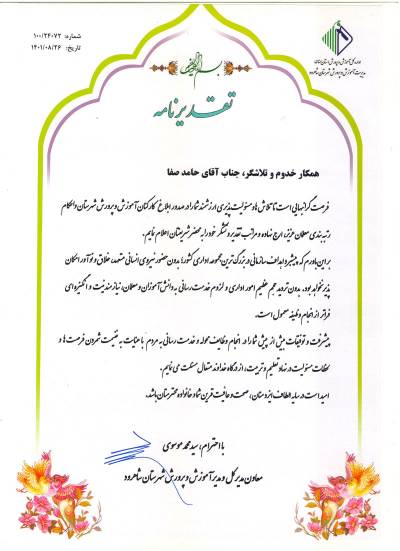 شماره: ۱۰۰/۲۴۰۷۲
تاریخ: ۱۴۰۱/۰۸/۲۶
اداره کل آموزش و پرورش استان سمنان
مدیریت آموزش و پرورش شهرستان شاهرود
تقدیرنامه
همکار خدوم و تلاشگر، جناب آقای حامد صفا
فرصت گرانبهایی است تا تلاش ها و مسئولیت پذیری ارزشمند شما را در صدور ابلاغ کارکنان آموزش و پرورش شهرستان و احکام
رتبه بندی معلمان عزیز، ارج نهاده و مراتب تقدیر و تشکر خود را به محضر شریفتان اعلام نمایم.
بر این باورم که پیشبرد اهداف سازمانی و بزرگ ترین مجموعه اداری کشور؛ بدون حضور نیروی انسانی متعهد، خلاق و نوآور امکان
پذیر نخواهد بود. بدون تردید حجم عظیم امور اداری و لزوم خدمت رسانی به دانش آموزان و معلمان، نیازمند نیت و انگیزه ای
فراتر از انجام وظیفه معمول است.
پیشرفت و توفیقات بیش از پیش شما را در انجام وظایف محوله و خدمت رسانی به مردم با عنایت به غنیمت شمردن فرصت ها و
لحظات مسئولیت در نهاد تعلیم و تربیت، از درگاه خداوند متعال مسئلت می نمایم.
امید است در سایه الطاف ایزد منان، صحت و عافیت قرین شما و خانواده محترمتان باشد.
با احترام، سید محمد موسوی
معاون مدیر کل و مدیر آموزش و پرورش شهرستان شاهرود